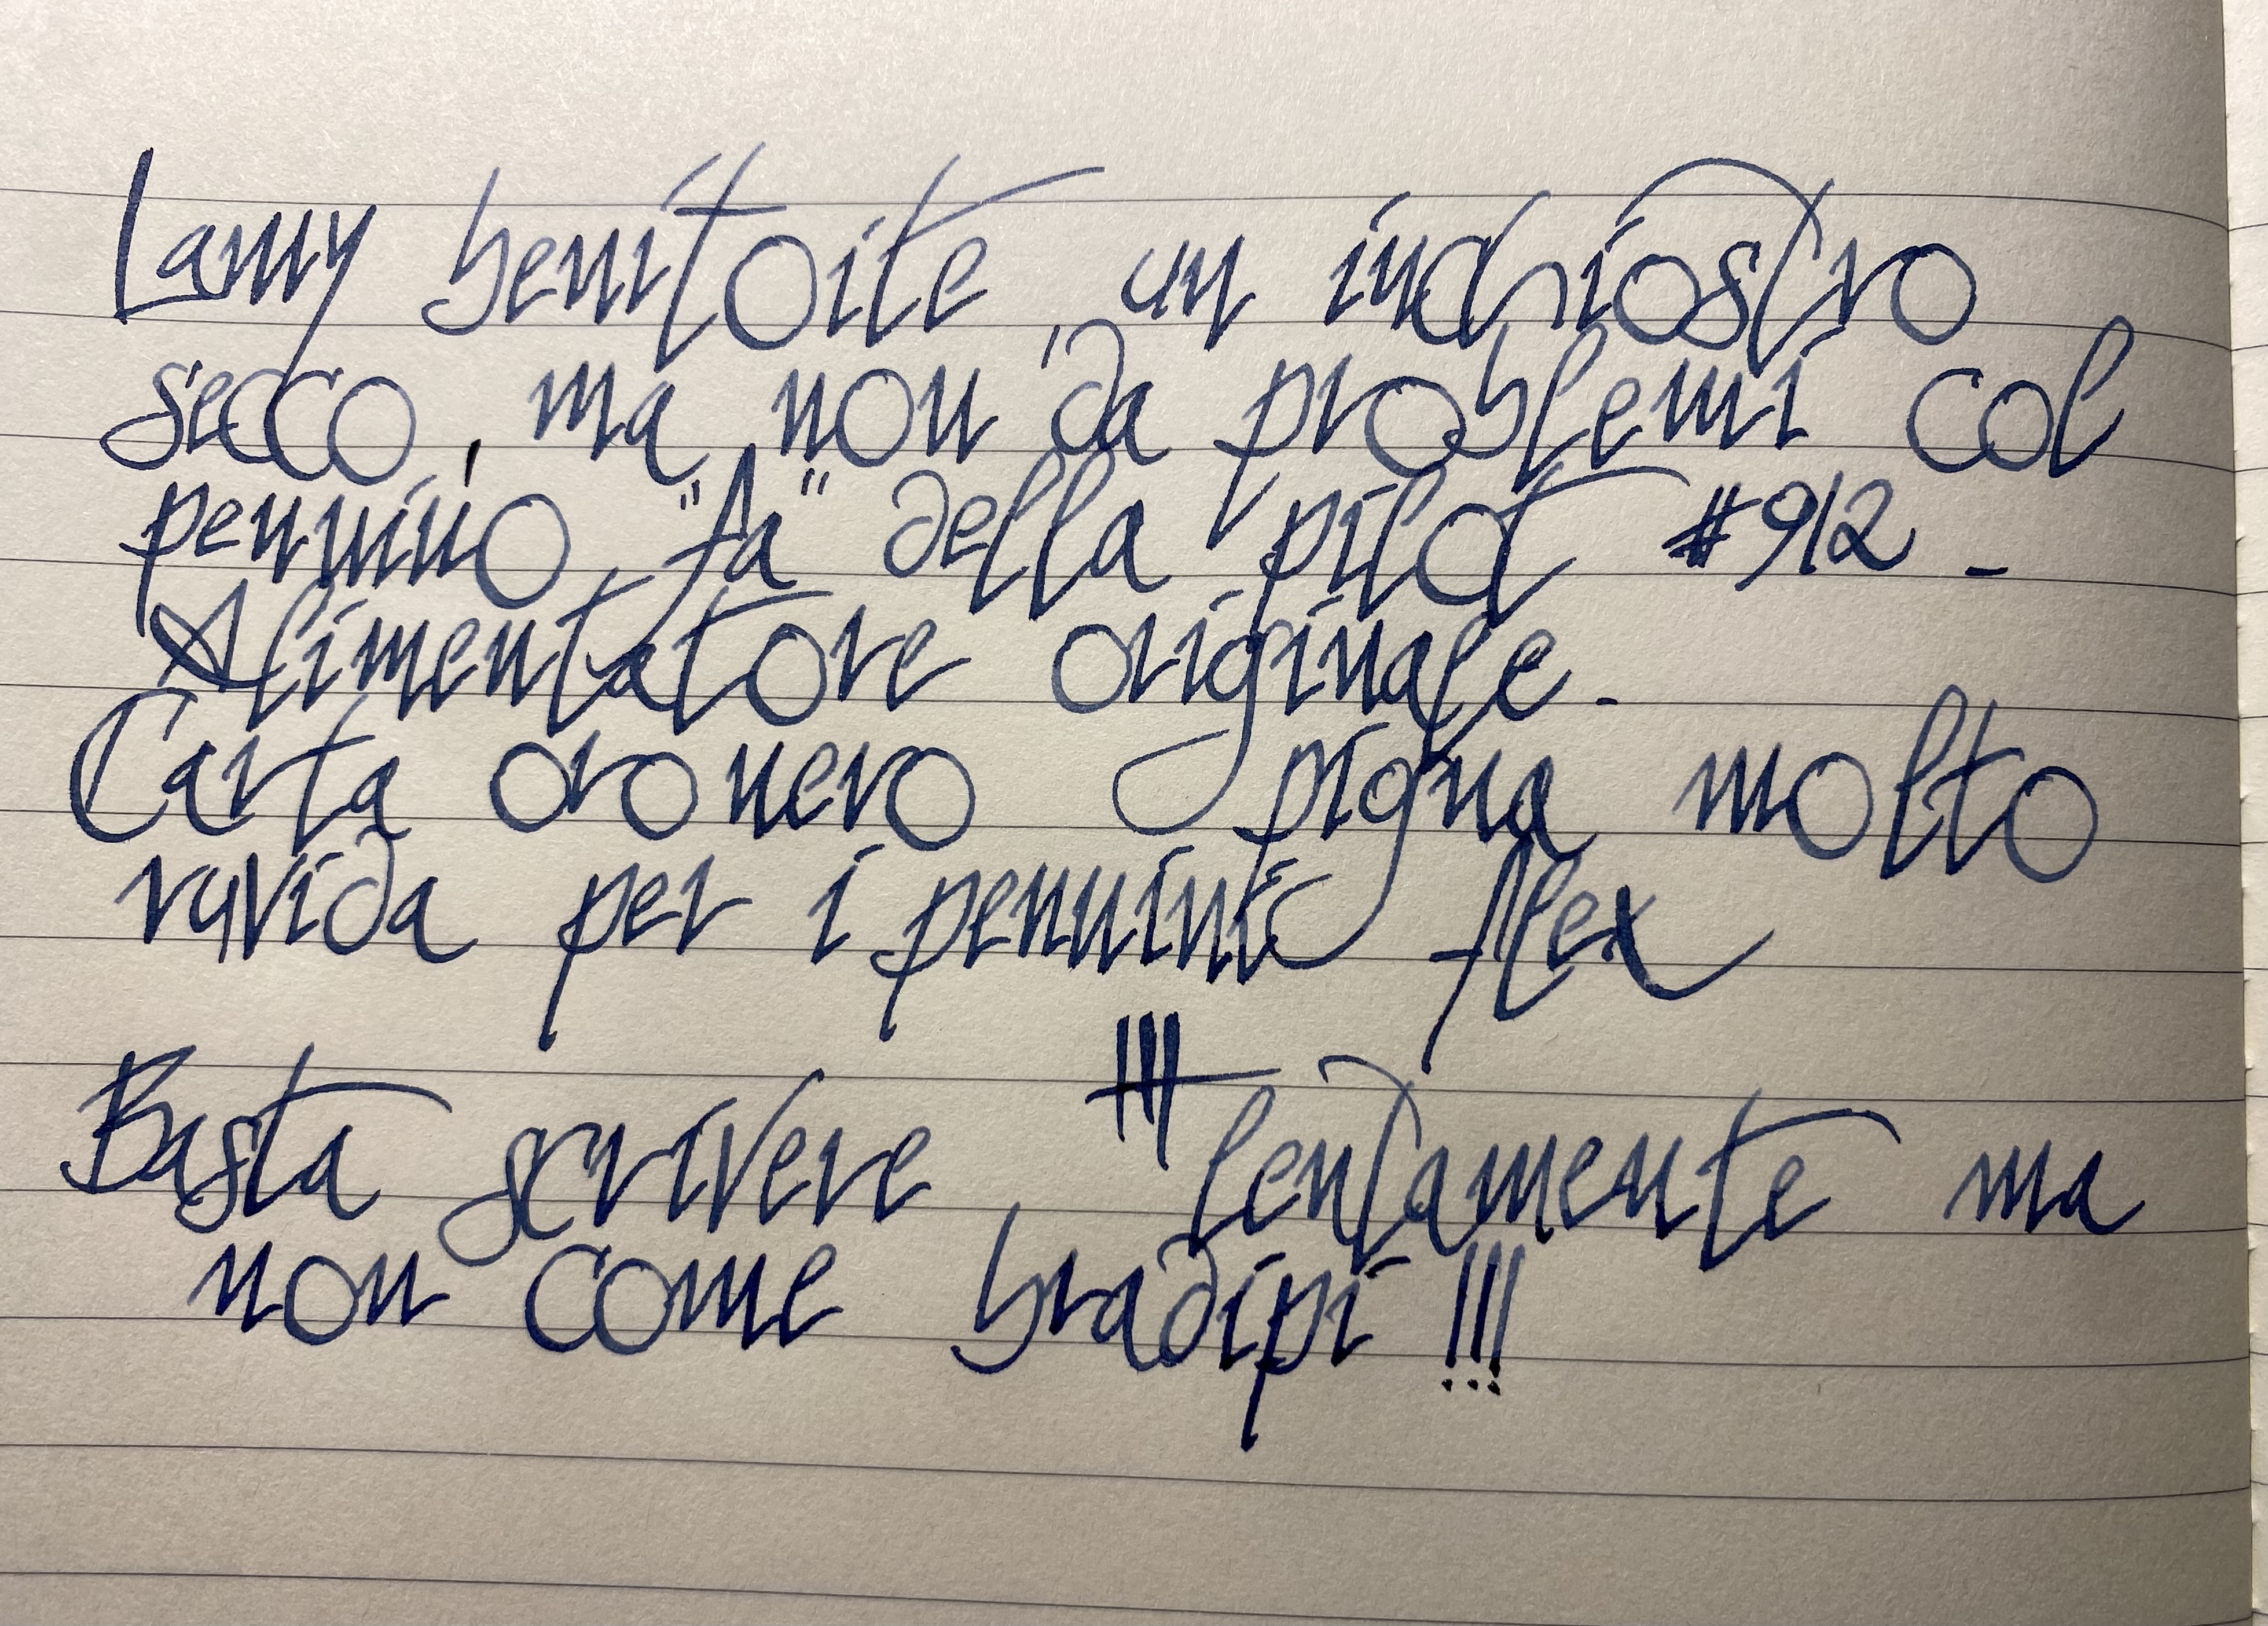 Lamy benitoite, un inchiostro
secco, ma non dà problemi col
pennino "fa" della pilot #912 -
Alimentatore originale -
Carta oro nero pigna molto
ruvida per i pennini flex
Basta scrivere, lentamente ma
non come bradipi !!!